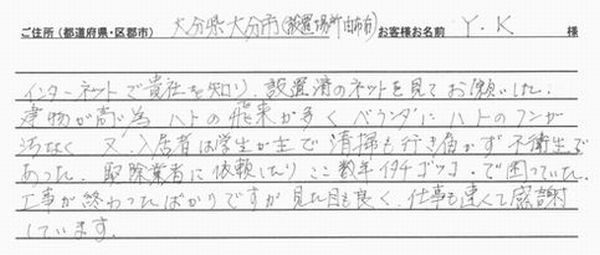 ご住所(都道府県・区郡市) 大分県大分市(設置場所由布市) お客様お名前 Y.K 様
インターネットで貴社を知り、設置済のネットを見てお願いした。
建物が高い為 ハトの飛来が多く ベランダにハトのフンが
汚なく 又、入居者は学生が主で 清掃も行き届かず 不衛生で
あった。駆除業者に依頼したり ここ数年イタチゴッコ・で困っていた。
工事が終わったばかりですが 見た目も良く、仕事も速くて感謝
しています。